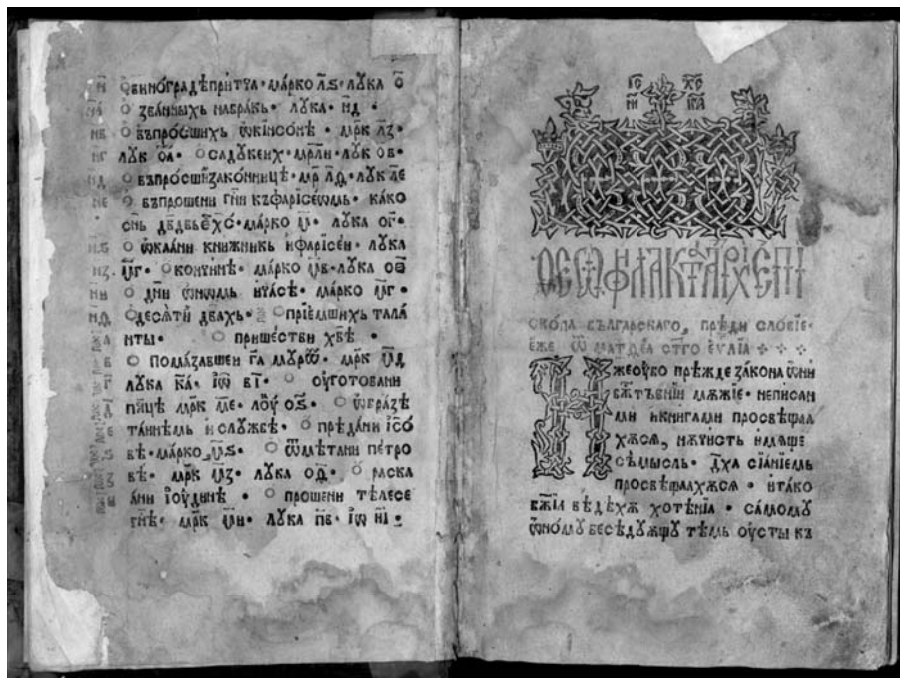 н҃ Ѻ виногрⷣадѣ притча · марко л҃ѕ · лука ѻ҃
н҃а Ѻ званныхь на бракь · лука · н҃д ·
н҃в Ѻ въпрошших ѡ кинсѡнѣ · мрк л҃з ·
н҃г лук ѻ҃а · Ѻ садукеих · мр л҃и · лук ѻ҃в ·
н҃д Ѻ въпрошши законницѣ · мр л҃ѳ · лук
н҃е Ѻ въпрошени г҃ни къ фарісеѡмь · како
с҃нь д҃вдвь е х҃с · марко м҃ · лука ѻ҃г ·
н҃ѕ Ѻ ѡкаани книжникь и фарісеи · лука
н҃з м҃г · Ѻ кончинѣ · марко м҃в · лука ѻ҃
н҃и Ѻ д҃ни ѡномь и часѣ · марко м҃г ·
н҃ѳ Ѻ десяти двахь · Ѻ пріемшихь тала
нты · Ѻ пришествіи х҃вѣ ·
Ѻ помазавшеи г҃а мурѡ · мрк м҃д
лука к҃а · іѡ в҃і · Ѻ оуготовани
пасцѣ мрк м҃е · лоу ѻ҃ѕ · Ѻ ѡбразѣ
таинѣмь и службѣ · Ѻ прѣдани іс҃о
вѣ · марко м҃ѕ Ѻ ѿмѣтани петро
вѣ · мрк м҃з · лука ѻ҃ · Ѻ раска
ани іоудинѣ · Ѻ прошени тѣлесе
г҃нѣ · мрк м҃и · лука п҃в · іѡ и҃і ·
іс҃ х҃с
ни ка
Ѳеѡфилакт архіепі
скопа българскаго, прѣдисловіе ·
еже ѿ матѳеа с҃тго еѵ҃лія
Иже оубо прѣжде закона ѡни
б҃жтъвніи мѫжіе · не писан
ми и книгами просвѣщаа
хѫся, нѫ чисть имяще
съмысль · д҃ха сіаніемь
просвѣщаахѫся · и тако
б҃жіа вѣдѣхѫ хотѣніа · самому
ѡному бесѣдуѫщу тѣмь оусты къ